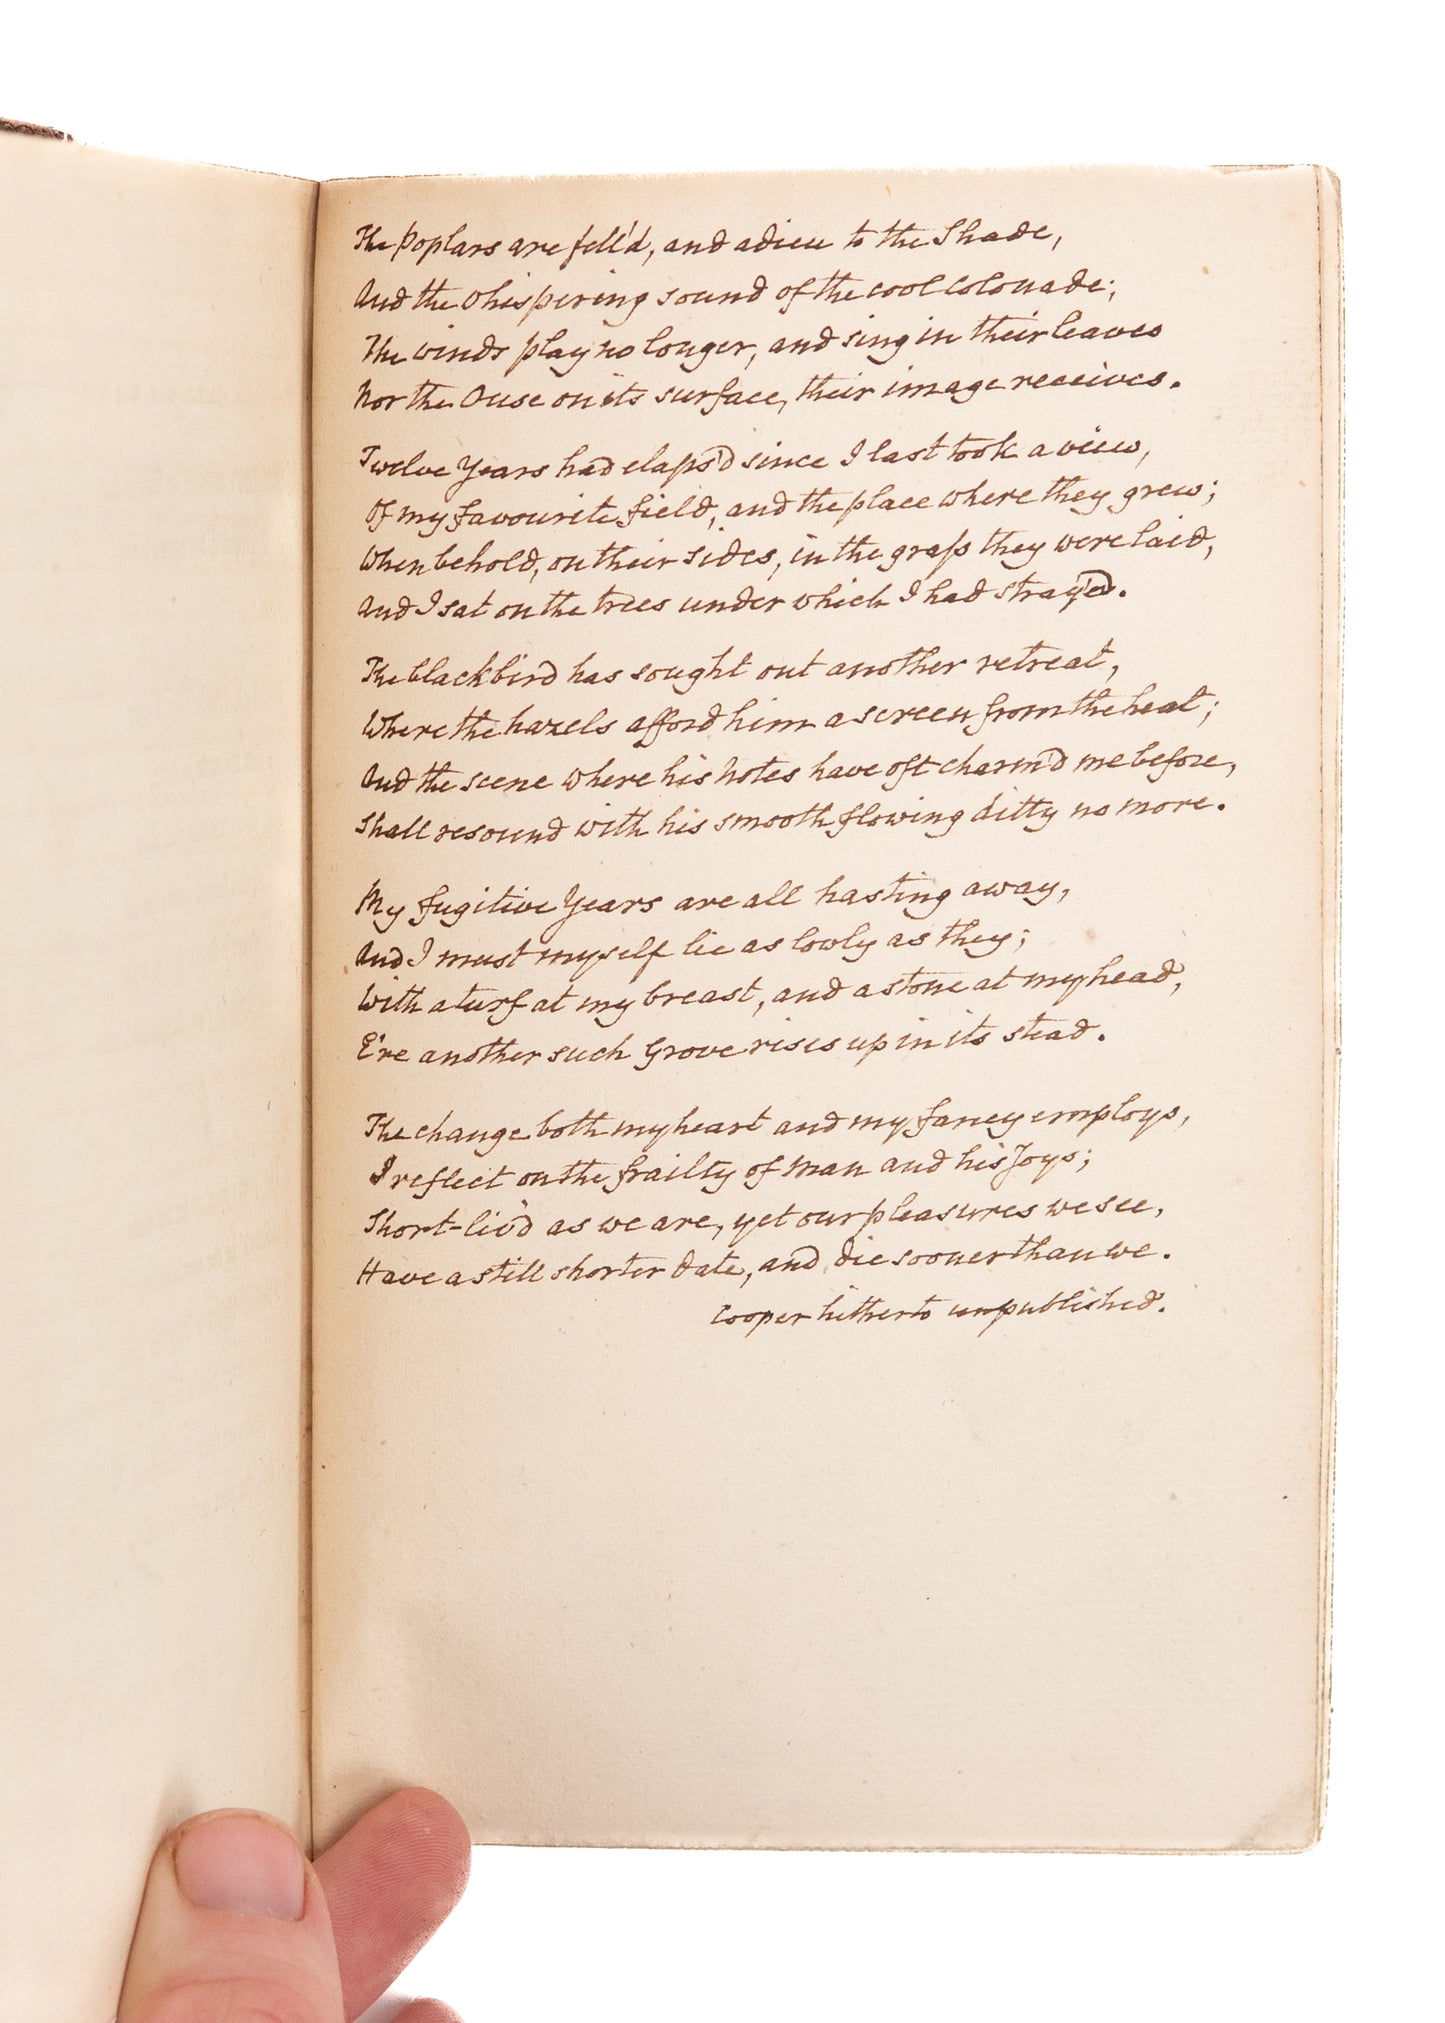 The Poplars are fell'd, and adieu to the Shade,
And the Whispering sound of the cool Colonade;
The winds play no longer, and sing in their leaves
Nor the Ouse on its surface, their image receives.
Twelve Years had elaps'd since I last took a view,
Of my favourite field, and the place where they grew;
When behold, on their sides, in the grass they were laid,
And I sat on the trees under which I had stray'd.
The blackbird has sought out another retreat,
Where the hazels afford him a screen from the heat;
And the scene where his notes have oft charm'd me before,
Shall resound with his smooth flowing ditty no more.
My fugitive Years are all hasting away,
And I must myself lie as lowly as they;
With a turf at my breast, and a stone at my head,
E're another such Grove rises up in its stead.
The change both my heart and my fancy employs,
I reflect on the frailty of Man and his Joys;
Short-liv'd as we are, yet our pleasures we see,
Have a still shorter date, and die sooner than we.
Cooper hitherto unpublished.